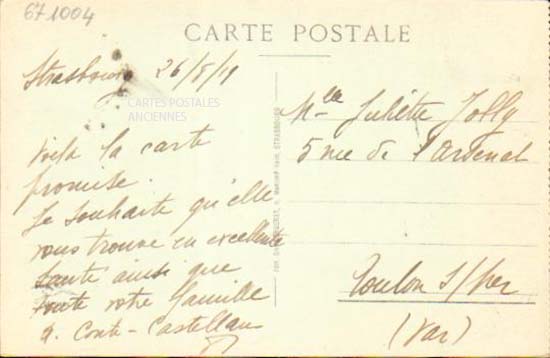 671004
CARTE POSTALE
Strasbourg 26/5/19
CARTES POSTALES
ANCIENNES
Voilà la carte
promise.
Je souhaite qu'elle
vous trouve en excellente
santé ainsi que
toute votre famille
a. Conte-Castellan
Mlle Juliette Jolly
5 rue de l'Arsenal
Toulon s/mer
(Var)